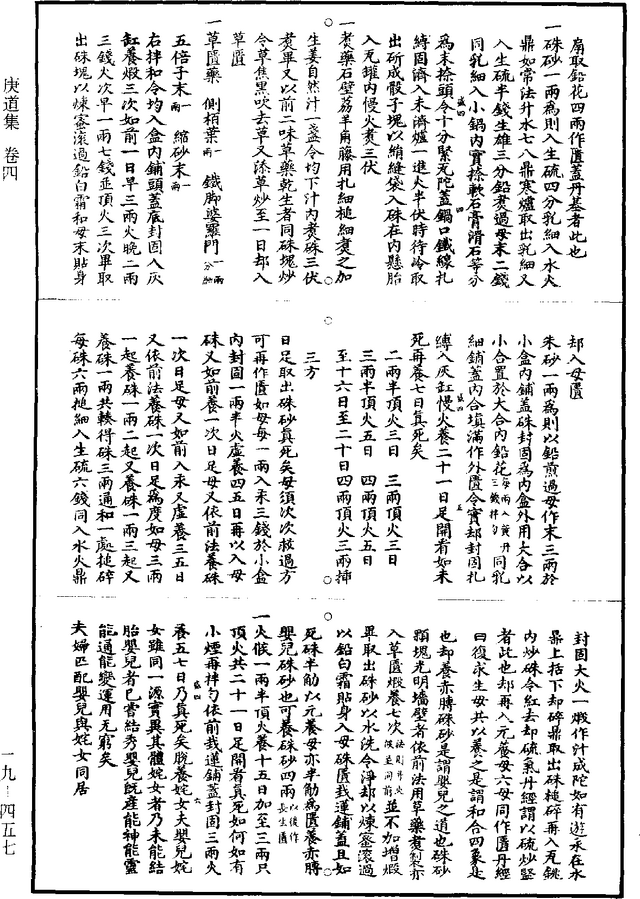 庚道集 卷四
扇取鉛花四兩作匱蓋丹基者此也
一硃砂一兩為則入生硫四分乳細入水火
鼎如常法升水七八鼎寒爐取出乳細又
入生硫半錢生雄三分鉛煮過母末二錢
同乳細入小鍋內實捺軟石膏滑石等分
為末捺頭令十分緊瓦陀蓋鍋口鐵線扎
縛固濟入未濟爐一進火半伏時待冷取
出斫成骰子塊以絹縫袋入硃在內懸胎
入瓦罐內慢火煮三伏
一煮藥石壁荔羊角藤用扎細槌細煑之加
生姜自然汁一盞令均下汁內煮硃三伏
煮畢又以前二味草藥乾生者同硃塊炒
令草焦黑吹去草又添草炒至一日却入
草匱
一草匱藥 側栢葉一兩 鐵脚婆羅門一兩
五倍子末一兩 縮砂末一兩
右拌和令均入盒內鋪頭蓋底封固入灰
缸養煅三次如前一日早三兩火晚二兩
三錢火次早一兩七錢並頂火三次畢取
出硃塊以煉蜜滾過鉛白霜和母末貼身
却入母匱
朱砂一兩為則以鉛煎過母作末三兩於
小盒內鋪蓋硃封固為內盒外用大合以
小合置於大合內鉛花每兩入黃丹三錢拌勻同乳
細鋪蓋內合填滿作外匱令實却封固扎
縛入灰缸慢火養二十一日足開看如未
死再養七日真死矣
二兩半頂火三日 三兩頂火三日
三兩半頂火五日 四兩頂火五日
至十六日至二十日四兩頂火三兩挿
三方
日足取出硃砂真死矣母須次次赦過方
可再作匱如母每一兩入汞三錢於小盒
內封固一兩半火虛養四五日再以入母
硃又如前養一次日足母又依前法養硃
一次日足母又如前入汞又虛養三五日
又依前法養硃一次日足為度如母三兩
一起養硃一兩二起又養硃一兩三起又
養硃一兩共輳得硃三兩通和一處槌碎
每硃六兩槌細入生硫六錢同入水火鼎
封固大火一煅作汁成陀如有遊汞在水
鼎上括下却碎鼎取出硃槌碎再入瓦銚
內炒硃令紅去却硫氣丹經謂以硫炒堅
者此也却再入元養母六母同作匱丹經
曰復求生母共以養之是謂和合四象是
也却養赤脖硃砂是謂嬰兒之道也硃砂
顆塊光明墻壁者依前法用草藥煮製亦
入草匱煅養七次法則升火候並同前並不加增煅
畢取出硃砂以水洗令淨却以煉蜜滾過
以鉛白霜貼身入母硃匱栽蓮鋪蓋且如
死硃半觔以元養母亦半觔為匱養赤脖
嬰兒硃砂也可養硃砂四兩以後作長生匱
一火候一兩半頂火養十五日加至三兩只
頂火共二十一日足開看真死如何如有
小煙再拌勻依前栽蓮鋪蓋封固三兩火
養五七日乃真死矣脫養姹女夫嬰兒姹
女雖同一源實異其體姹女者乃未能結
胎嬰兒者巳嘗結秀嬰兒既產能神能靈
能通能變運用无窮矣
夫婦匹配嬰兒與姹女同居
一九-四五七